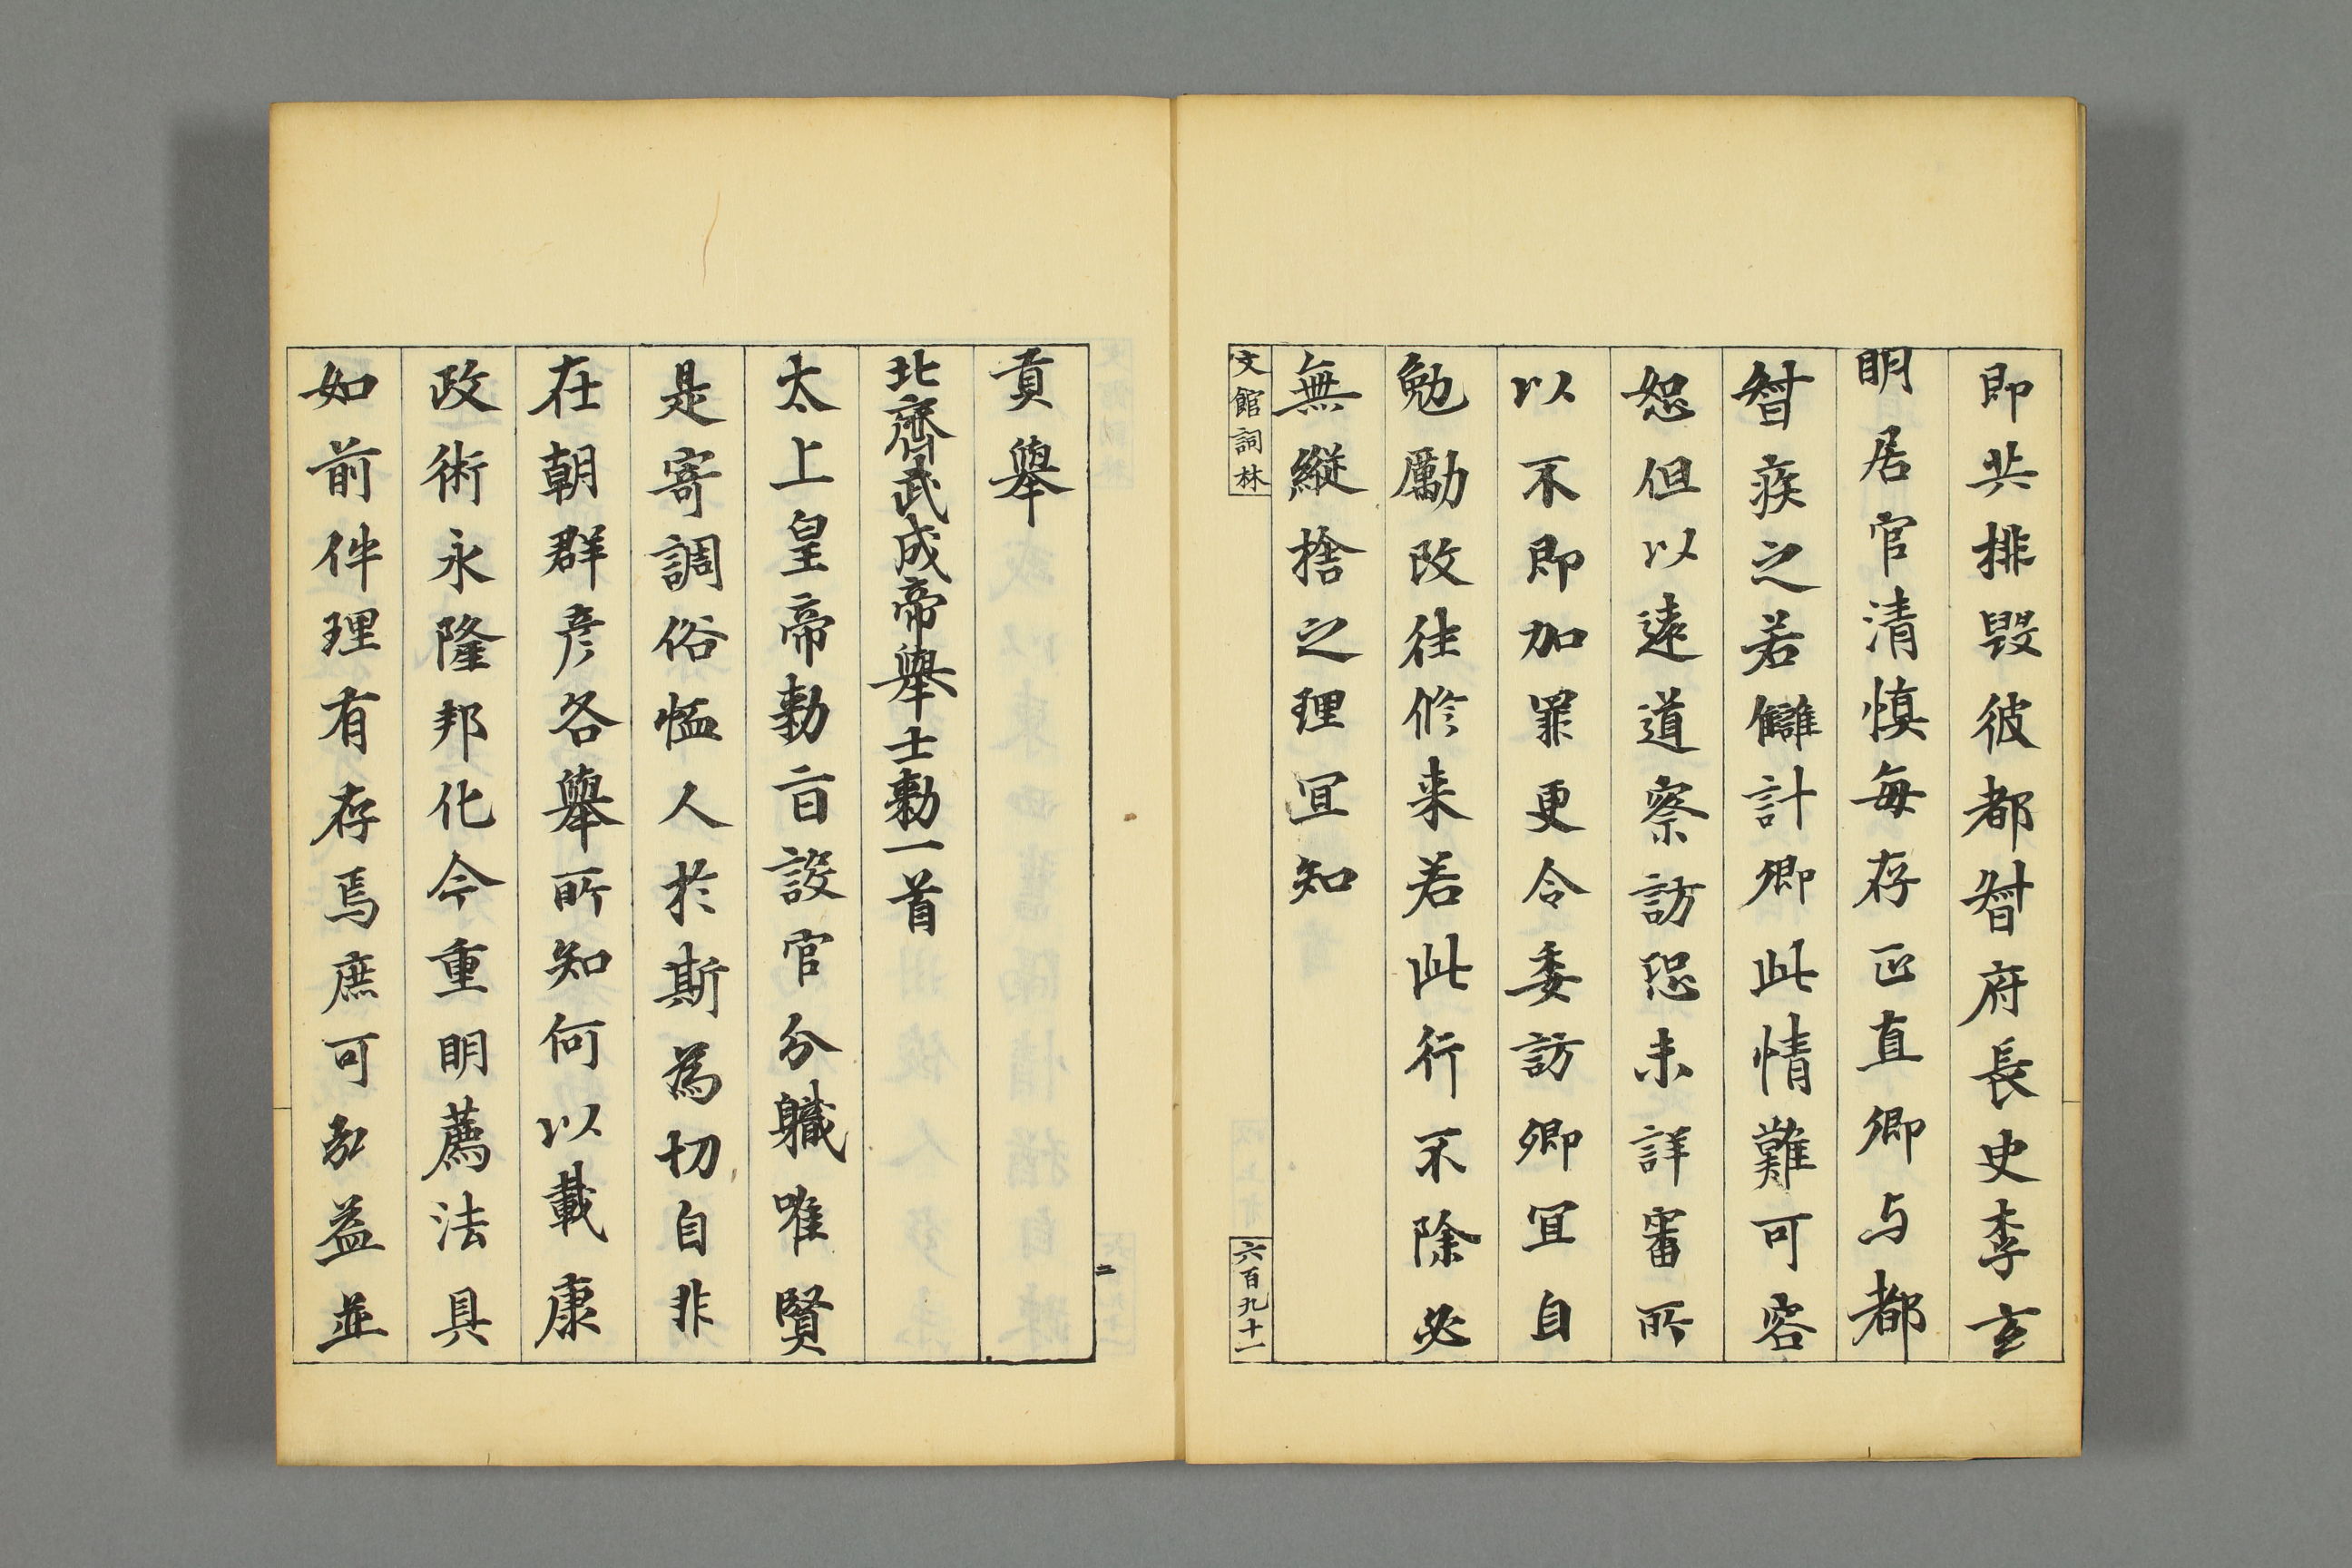 即共排毀彼都督府長史李玄
明居官清慎每存正直卿与都
督疾之若讎計卿此情難可容
恕但以遠道察訪恐未詳審所
以不即加罪更令委訪卿宜自
勉勵改往修来若此行不除必
無縱捨之理宜知
文館詞林
六百九十一
二
貢舉
北齊武成帝舉士勅一首
太上皇帝勅旨設官分軄唯賢
是寄調俗恤人於斯為切自非
在朝群彦各舉所知何以載康
政術永隆邦化今重明薦法具
如前件理有存焉庶可弘益並